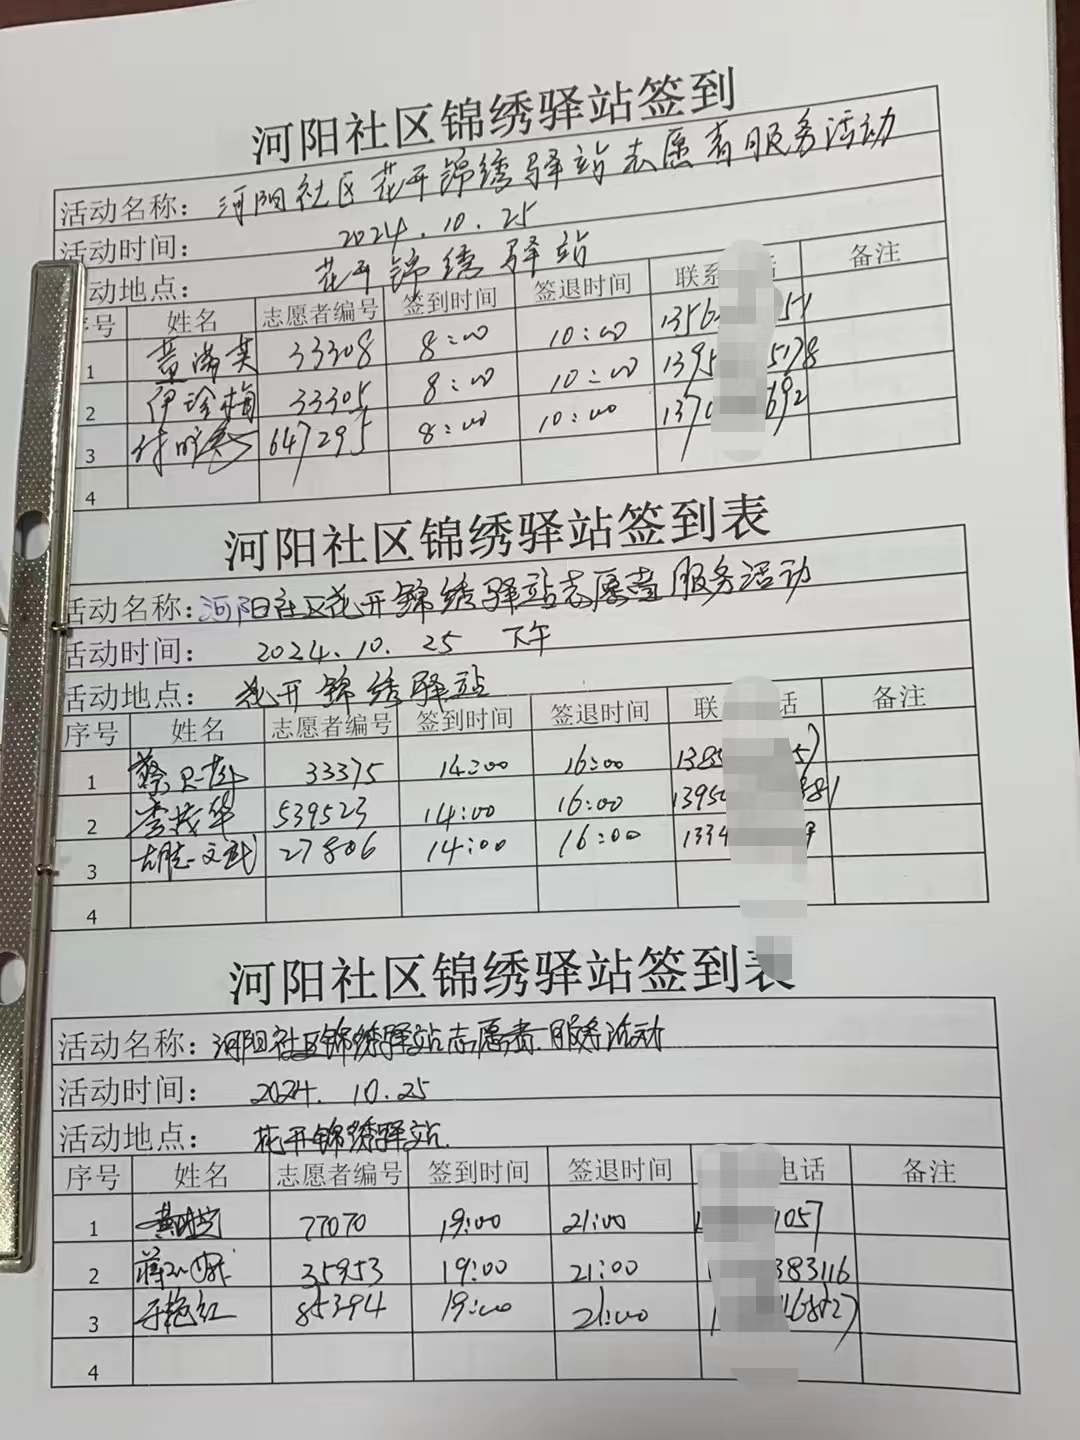 河阳社区锦绣驿站签到
活动名称：河阳社区花开锦绣驿站志愿者服务活动
活动时间： 2024.10.25
动地点： 花开锦绣驿站
号 姓名 志愿者编号 签到时间 签退时间 联系 话 备注
1 黄满英 33308 8:00 10:00 1356 51
2 伊珍梅 33305 8:00 10:00 1395 5178
3 647295 8:00 10:00 1370 692
4
河阳社区锦绣驿站签到表
活动名称：河阳社区花开锦绣驿站志愿者服务活动
活动时间： 2024.10.25 下午
活动地点： 花开锦绣驿站
序号 姓名 志愿者编号 签到时间 签退时间 联 话 备注
1 蔡 33375 14:00 16:00 1385 57
2 李茂华 539523 14:00 16:00 1395 881
3 胡志文武 27806 14:00 16:00 1334 9
4
河阳社区锦绣驿站签到表
活动名称：河阳社区锦绣驿站志愿者服务活动
活动时间： 2024.10.25
活动地点： 花开锦绣驿站.
序号 姓名 志愿者编号 签到时间 签退时间 电话 备注
1 77070 19:00 21:00 1 1057
2 35953 19:00 21:00 1 383116
3 于艳红 85394 19:00 21:00 1
4